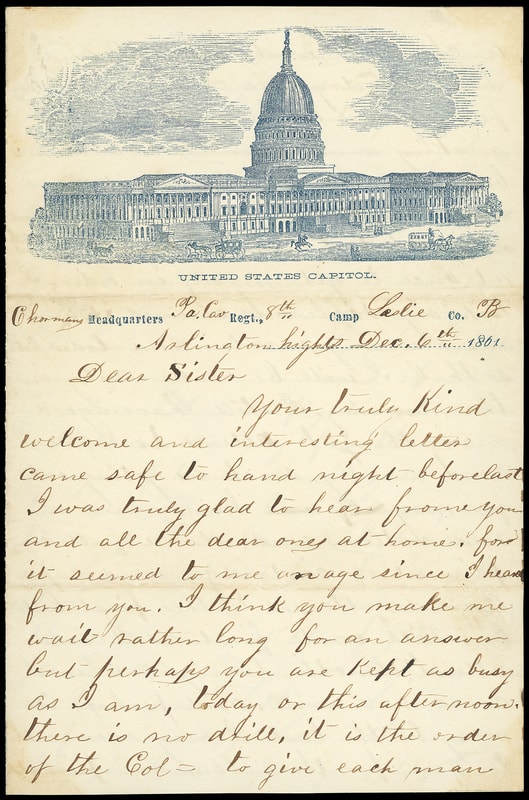 UNITED STATES CAPITOL.
Chormans Headquarters Pa. Cav Regt., 8th Camp Leslie Co. B
Arlington hights Dec. 6th 1861
Dear Sister
Your truly Kind
welcome and interesting letter
came safe to hand night before last
I was truly glad to hear frome you
and all the dear ones at home. for
it seemed to me an age since I heard
from you. I think you make me
wait rather long for an answer
but perhaps you are kept as busy
as I am, today or this afternoon.
there is no drill, it is the order
of the Col= to give each man